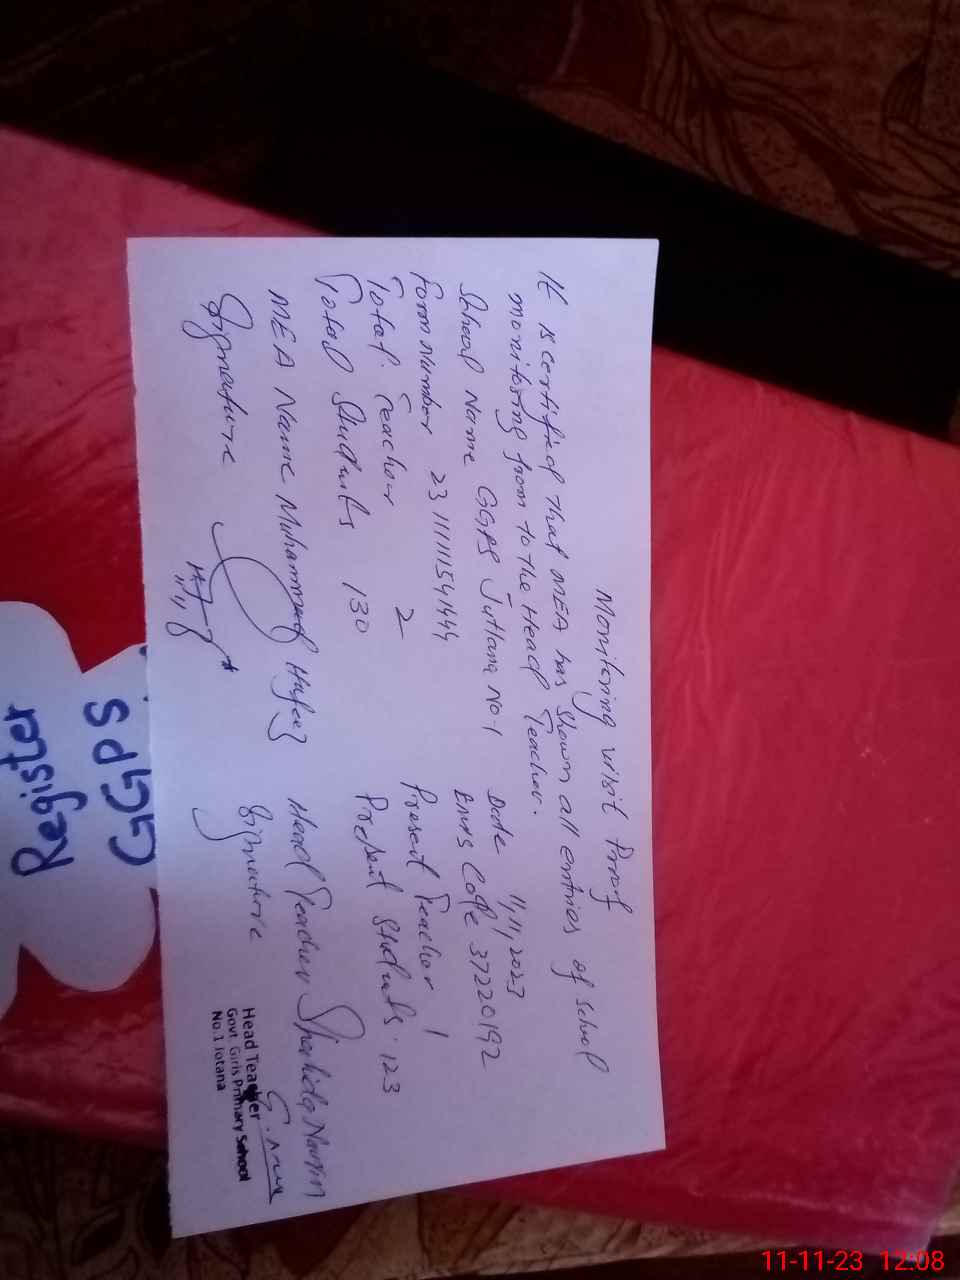 Monitoring visit Proof
It is certified that MEA has shown all entries of school
monitoring from to the Head Teacher.
Date 11/11/2023
School Name GGPS Jutlana No 1 Emis Code 37220192
Form Number Present Teacher 1
Total Teacher 2
Present Students 123
Total Students 130
MEA Name Muhammad Hafeez Head Teacher Shahida
Signature Signature
Head Teacher
Govt. Girls Primary School
No.1 Jotana
GGPS
Register
11-11-23 12:08